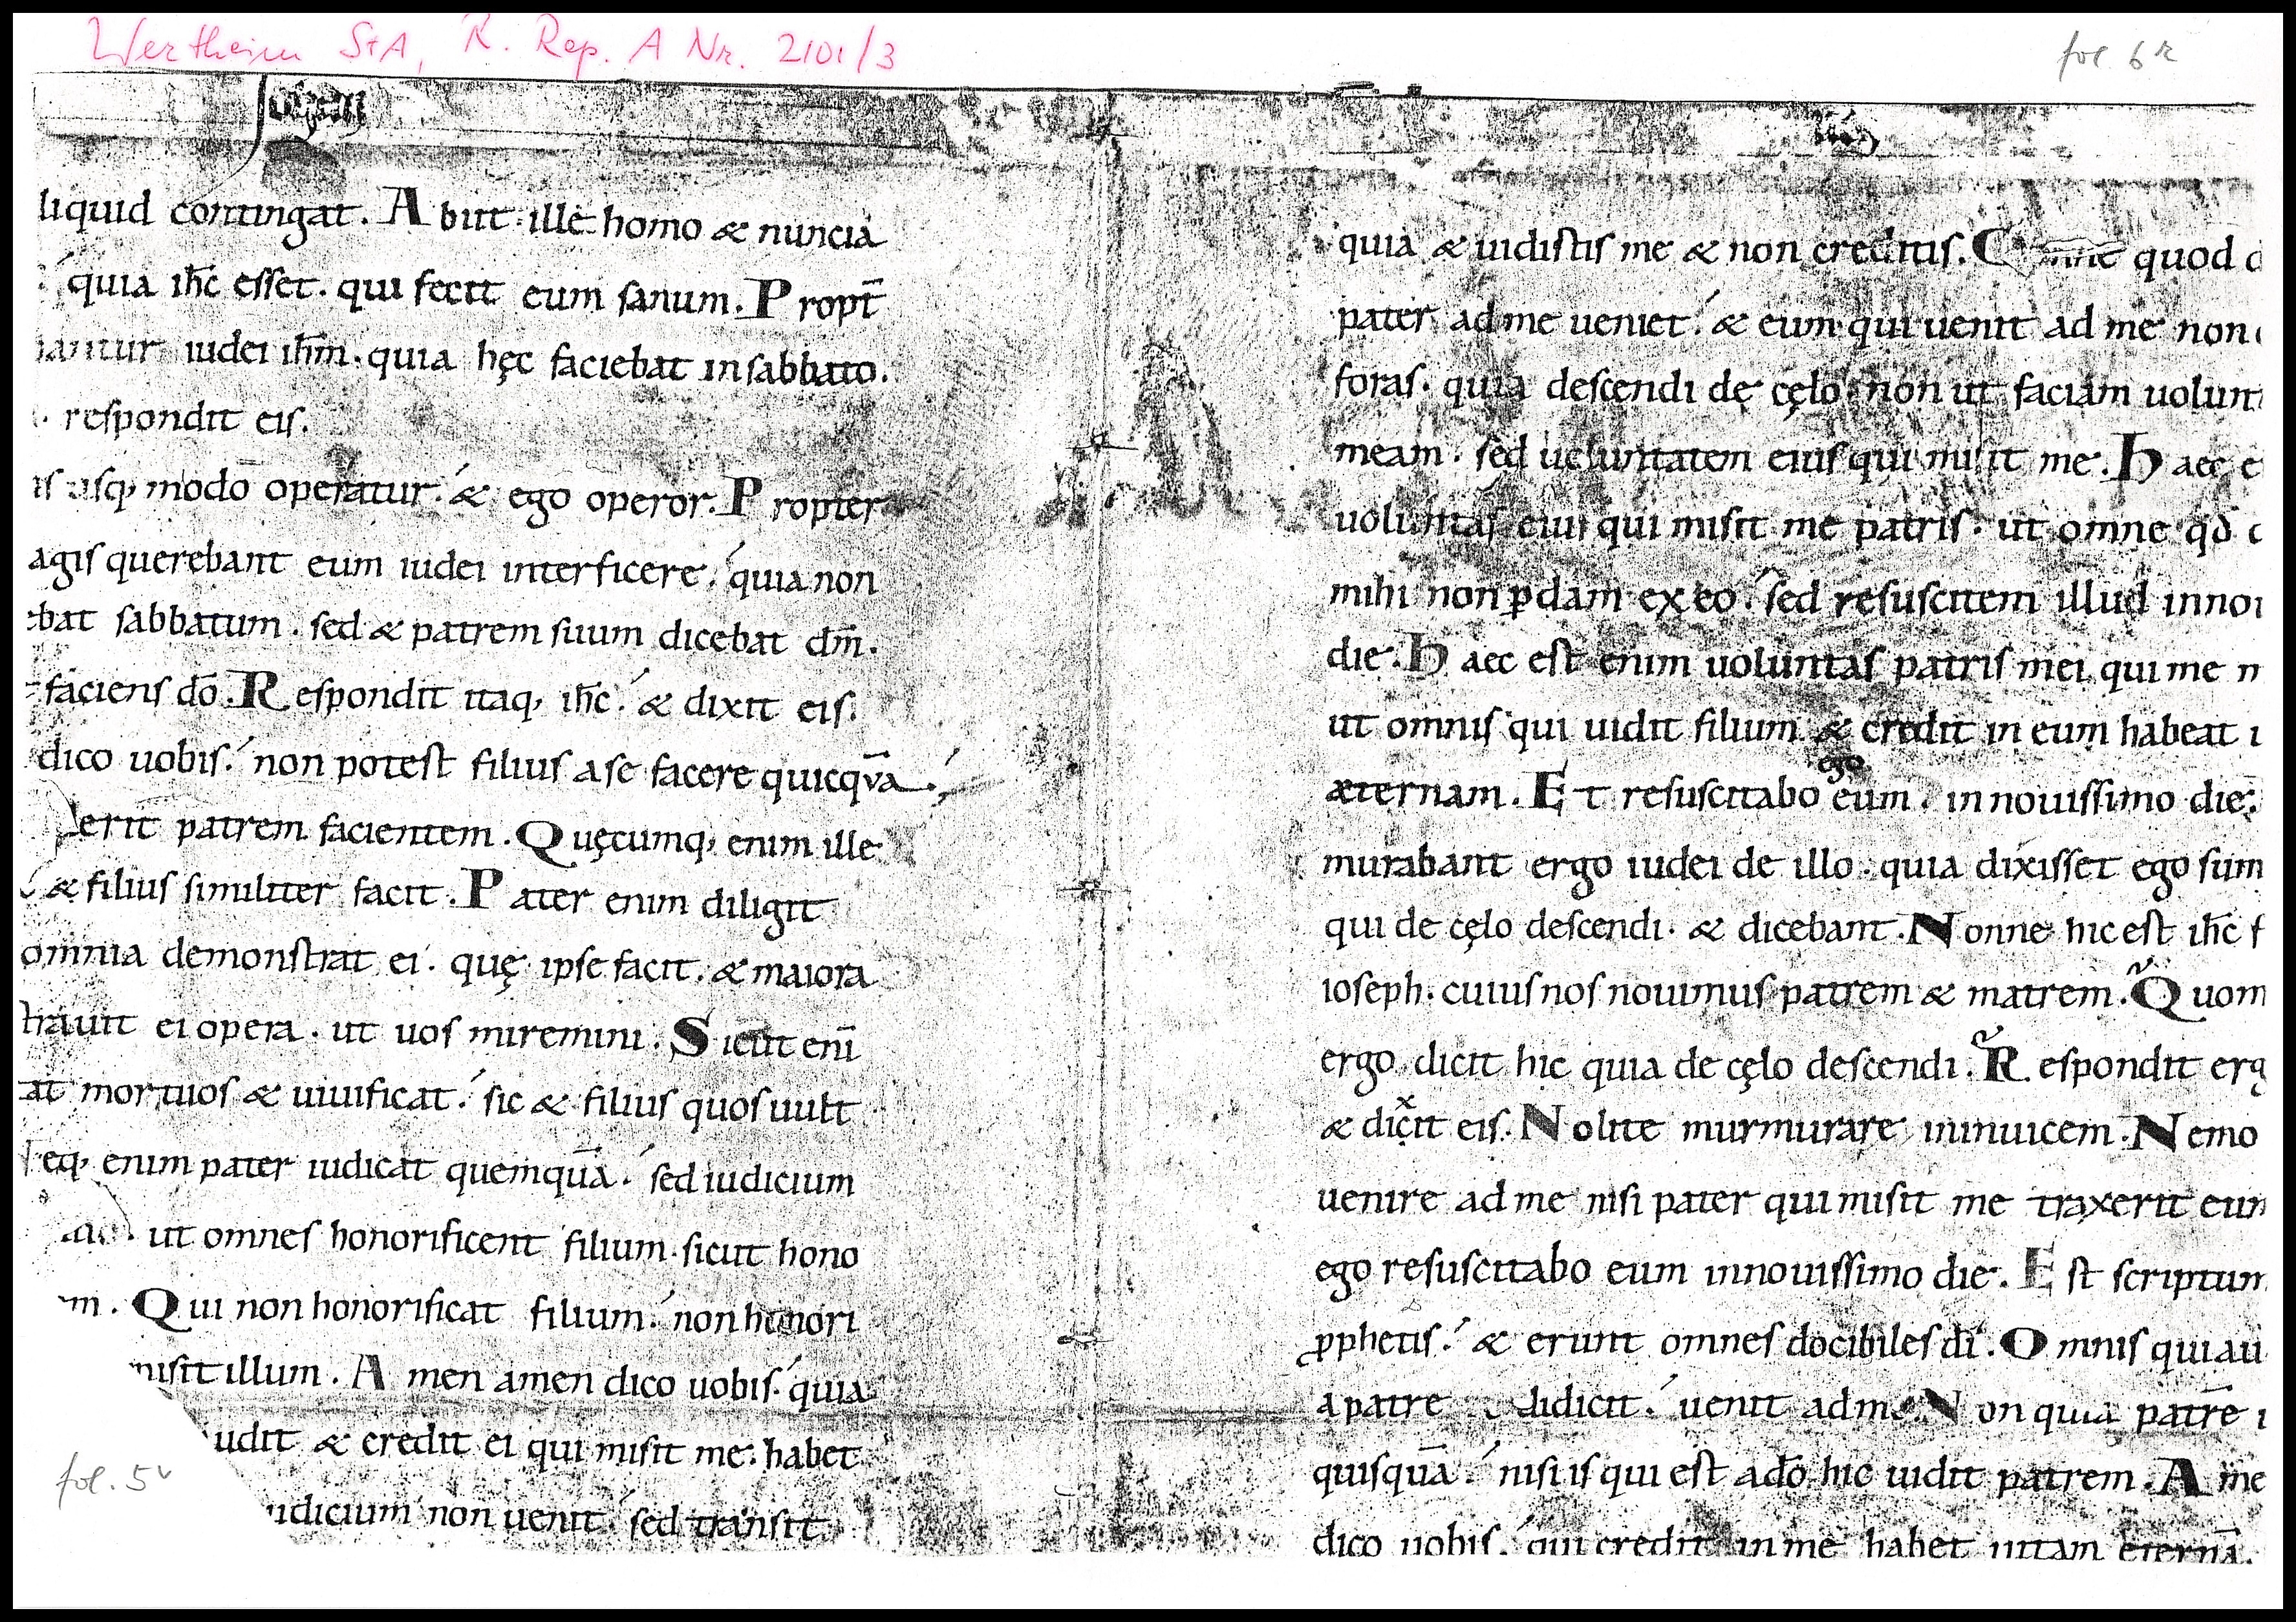 Wertheim StA, R. Rep. A Nr. 2101/3
fol 6r
liquid contingat. Abiit ille homo & nuncia
quia ih̅c esset. qui fecit eum sanum. Propt̅
iudei ih̅m. quia hęc faciebat in sabbato.
respondit eis.
usq; modo operatur. & ego operor. Propter
agis querebant eum iudei interficere. quia non
ebat sabbatum. sed & patrem suum dicebat dm̅.
faciens do̅. Respondit itaq; ih̅c. & dixit eis.
dico uobis. non potest filius a se facere quicqua̅.
erit patrem facientem. Quęcumq; enim ille
& filius similiter facit. Pater enim diligit
omnia demonstrat ei. quę ipse facit. & maiora
trauit ei opera. ut uos miremini. Sicut eni̅
at mortuos & uiuificat. sic & filius quos uult
eq; enim pater iudicat quemqua̅. sed iudicium
ut omnes honorificent filium. sicut hono
m. Qui non honorificat filium. non honori
misit illum. Amen amen dico uobis. quia
udit & credit ei qui misit me. habet
fol. 5v
iudicium non uenit. sed transit
quia & uidistis me & non creditis. quod
pater ad me ueniet. & eum qui uenit ad me non
foras. quia descendi de cęlo. non ut faciam uolunt
meam. sed uoluntatem eius qui misit me. Haec e
uoluntas eius qui misit me patris. ut omne qd̅
mihi non ꝑdam ex eo. sed resuscitem illud in noi
die. Haec est enim uoluntas patris mei qui me m
ut omnis qui uidit filium & credit in eum habeat
ego
æternam. Et resuscitabo eum. in nouissimo die.
murabant ergo iudei de illo. quia dixisset ego sum
qui de cęlo descendi. & dicebant. Nonne hic est ih̅c f
ioseph. cuius nos nouimus patrem & matrem. Quom
ergo dicit hic quia de cęlo descendi. Respondit erg
x
& dicit eis. Nolite murmurare inuicem. Nemo
uenire ad me nisi pater qui misit me traxerit eum
ego resuscitabo eum in nouissimo die. Est scriptum
ꝓphetis. & erunt omnes docibiles di̅. Omnis qui au
a patre didicit. uenit ad me. Non quia patre̅
quisqua̅. nisi is qui est a do̅ hic uidit patrem. Ame
dico uobis. qui credit in me habet uitam eterna̅.